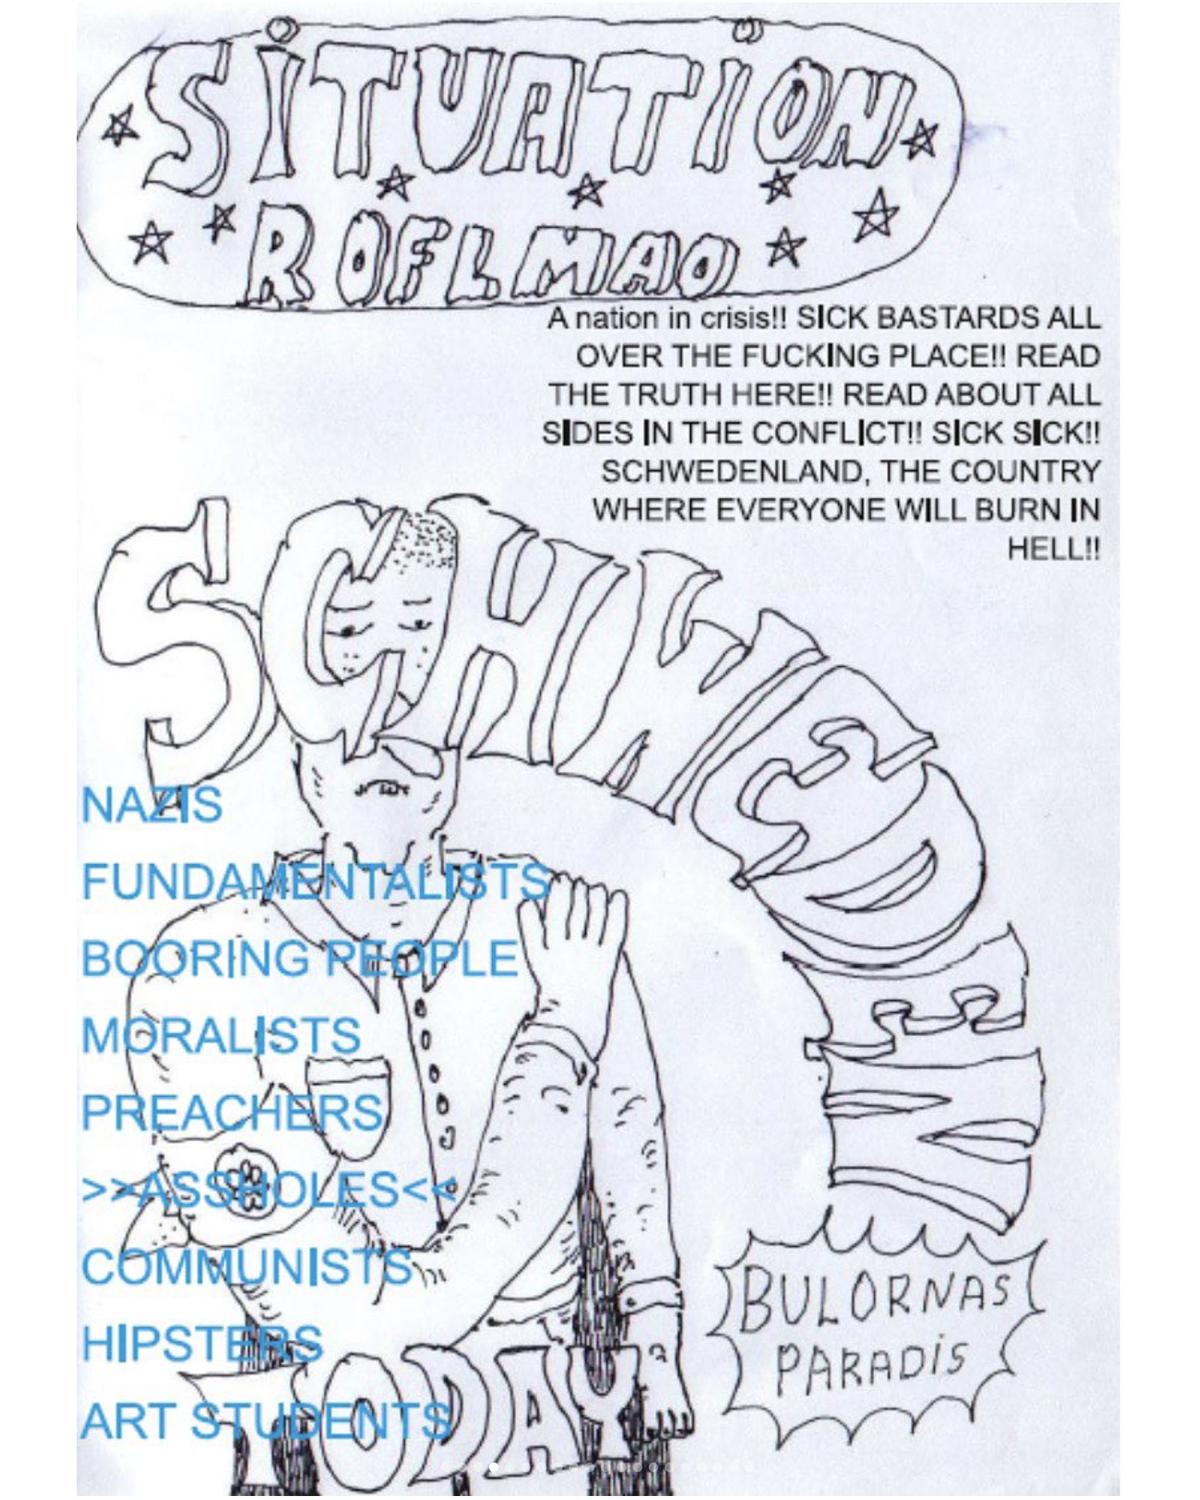 SiTUATiON
ROFLMAO
A nation in crisis!! SICK BASTARDS ALL
OVER THE FUCKING PLACE!! READ
THE TRUTH HERE!! READ ABOUT ALL
SIDES IN THE CONFLICT!! SICK SICK!!
SCHWEDENLAND, THE COUNTRY
WHERE EVERYONE WILL BURN IN
HELL!!
SCHWEDEN
NAZIS
FUNDAMENTALISTS
BOORING PEOPLE
MORALISTS
PREACHERS
>>ASSHOLES<<
COMMUNISTS
HIPSTERS
ART STUDENTS
TODAY
BULORNAS
PARADiS